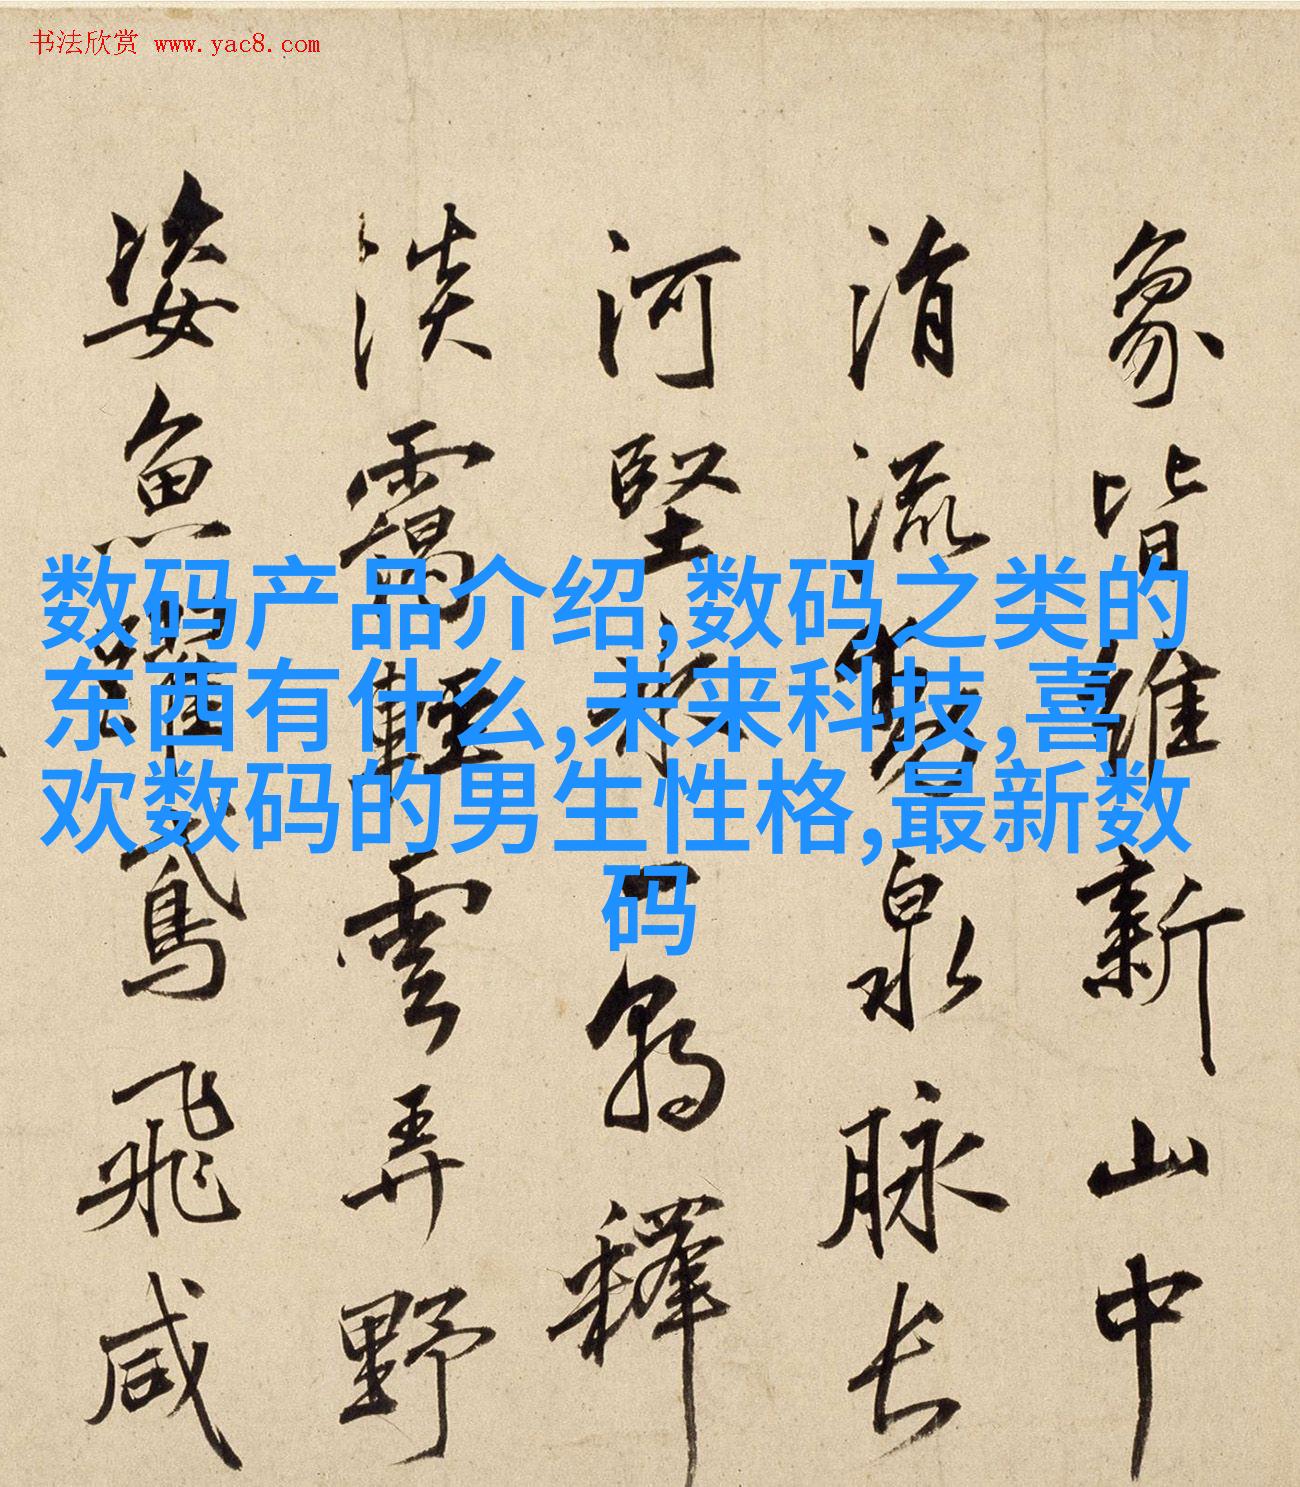 书法欣赏 www.yac8.com
象皆維新山中
消流勢泉脉长
河堅冰
釋
淡靄輕雲弄野
姿魚躍鳶飛咸
数码产品介绍,数码之类的
东西有什么,未来科技,喜
欢数码的男生性格,最新数
码